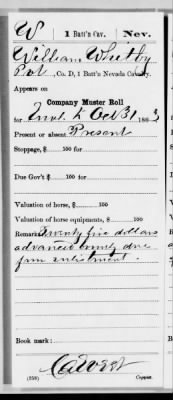 W | 1 Batt'n Cav. | Nev.
William Whetby
Pvt, Co. D, 1 Batt'n Nevada Cavalry.
Appears on
Company Muster Roll
for to Oct 31, 1863
Present or absent Present
Stoppage, $ 100 for
Due Gov't $ 100 for
Valuation of horse, $ 100
Valuation of horse equipments, $ 100
Remarks: Twenty five dollars
advanced bounty due
from enlistment.
Book mark:
(358) Copyist.